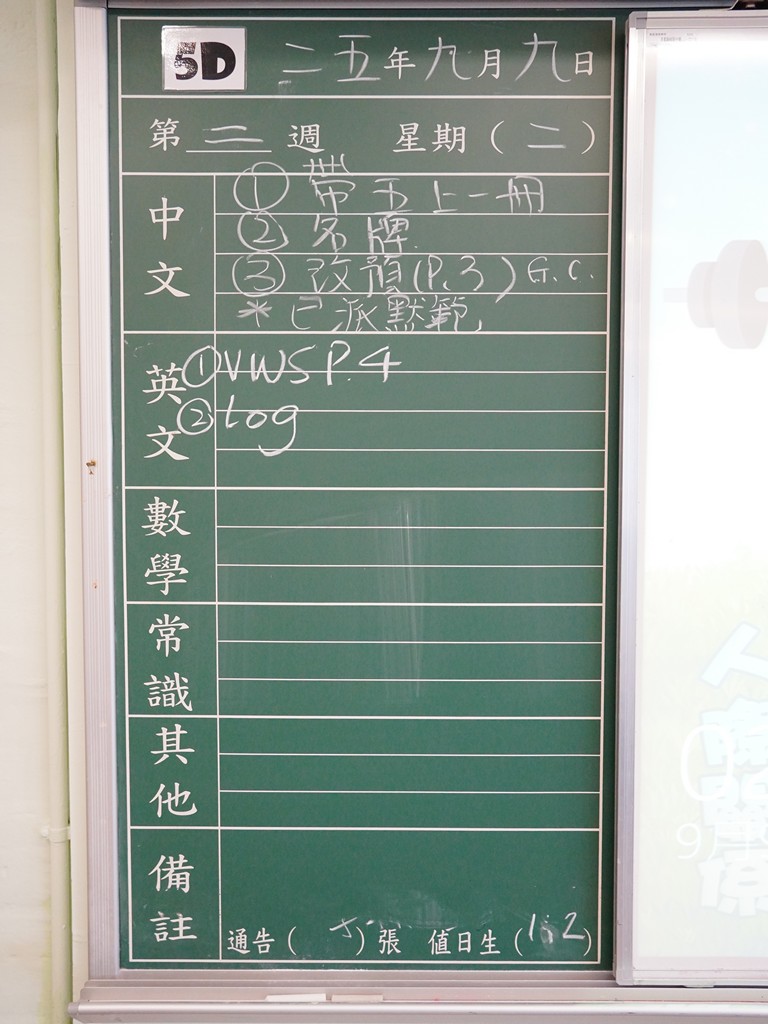 5D 二五年九月九日
第二週 星期(二)
中文
① 帶五上一冊
② 名牌
③ 改預(P.3) G.C.
* 已派默範
英文
① VWS P.4
② Log
數學
常識
其他
備註
通告( )張 值日生(1,2)
9月9